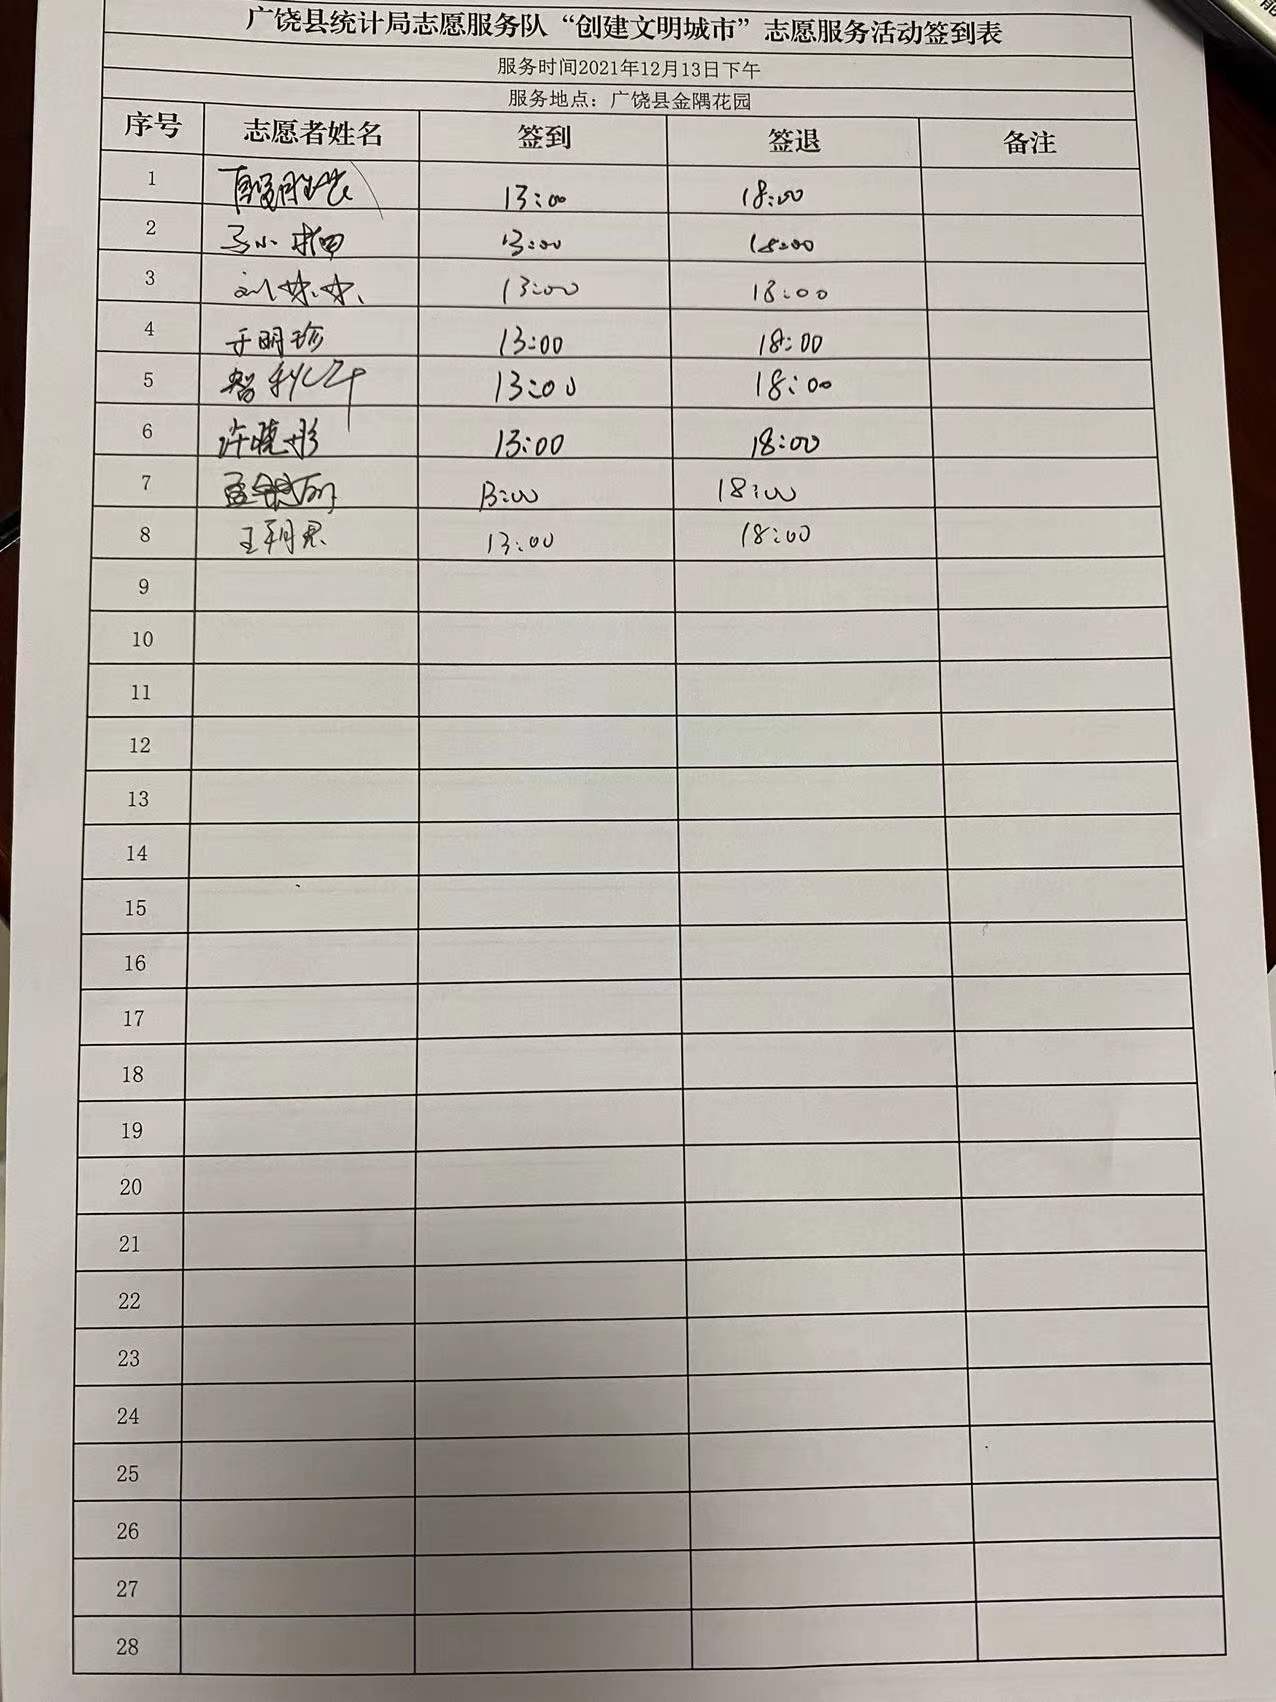 广饶县统计局志愿服务队“创建文明城市”志愿服务活动签到表
服务时间2021年12月13日下午
服务地点：广饶县金隅花园
序号 志愿者姓名 签到 签退 备注
1 13:00 18:00
2 13:00 18:00
3 刘姝姝 13:00 18:00
4 于明珍 13:00 18:00
5 13:00 18:00
6 许晓彤 13:00 18:00
7 13:00 18:00
8 13:00 18:00
9
10
11
12
13
14
15
16
17
18
19
20
21
22
23
24
25
26
27
28